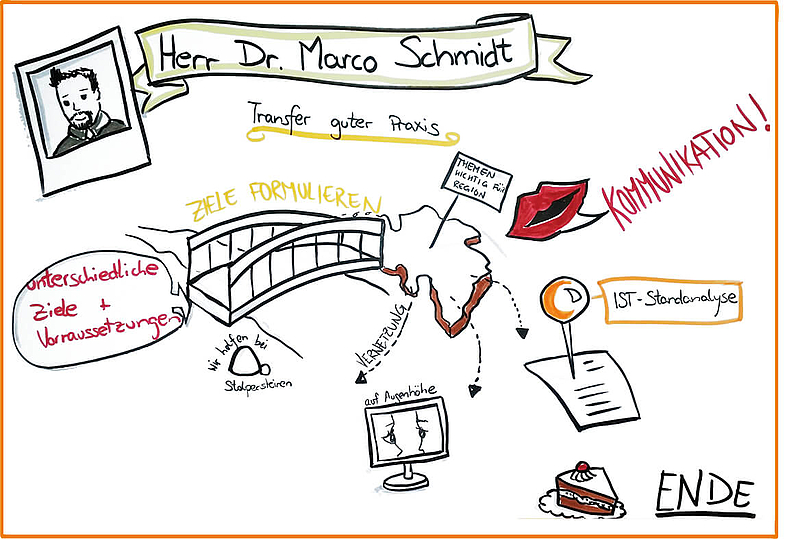 Herr Dr. Marco Schmidt
Transfer guter Praxis
ZIELE FORMULIEREN
THEMEN
WICHTIG FÜR
REGION
KOMMUNIKATION!
unterschiedliche
Ziele +
Vorraussetzungen
IST-Standanalyse
VERNETZUNG
wir helfen bei
Stolpersteinen
auf Augenhöhe
ENDE